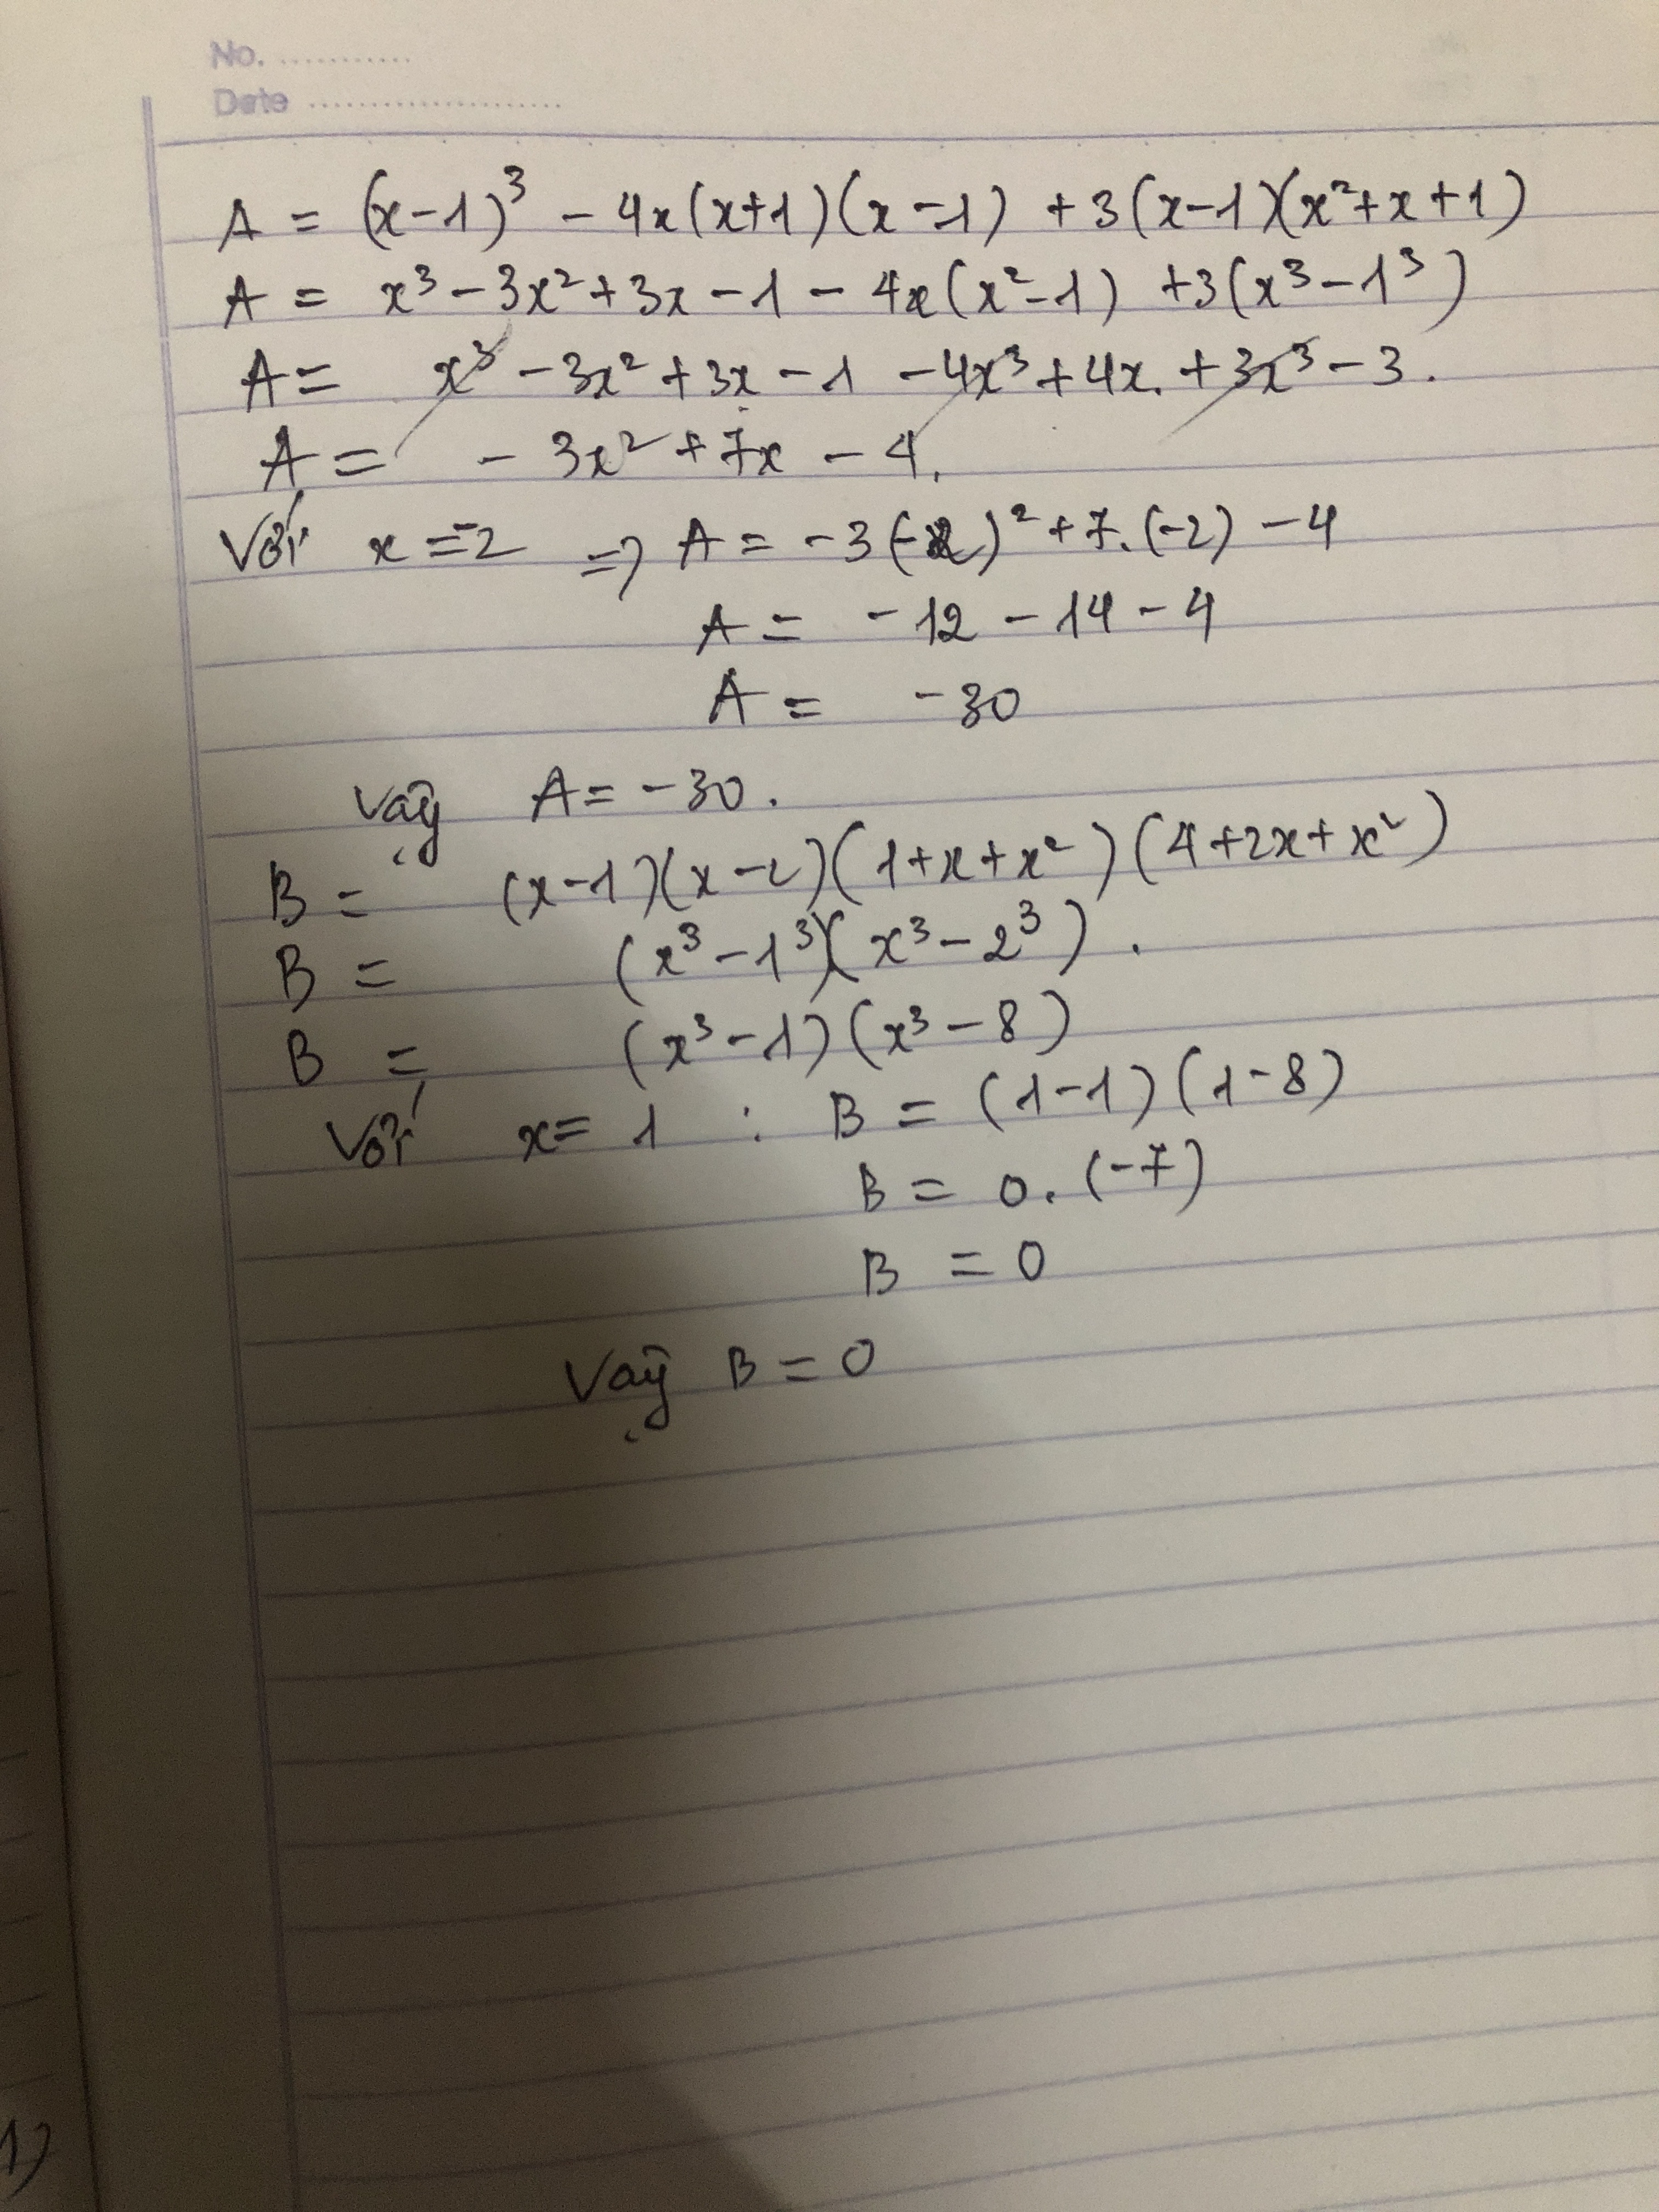 No. ...........
Date .....................
A = (x-1)³ - 4x(x+1)(x-1) + 3(x-1)(x²+x+1)
A = x³-3x²+3x-1-4x(x²-1) +3(x³-1³)
A = x³-3x²+3x-1-4x³+4x.+3x³-3.
A = -3x²+7x-4.
Với x=-2 => A = -3(-2)²+7.(-2)-4
A = -12-14-4
A = -30
Vậy A=-30.
B = (x-1)(x-2)(1+x+x²)(4+2x+x²)
B = (x³-1³)(x³-2³).
B = (x³-1)(x³-8)
Với x=1 : B = (1-1)(1-8)
B = 0.(-7)
B = 0
Vậy B=0
1)